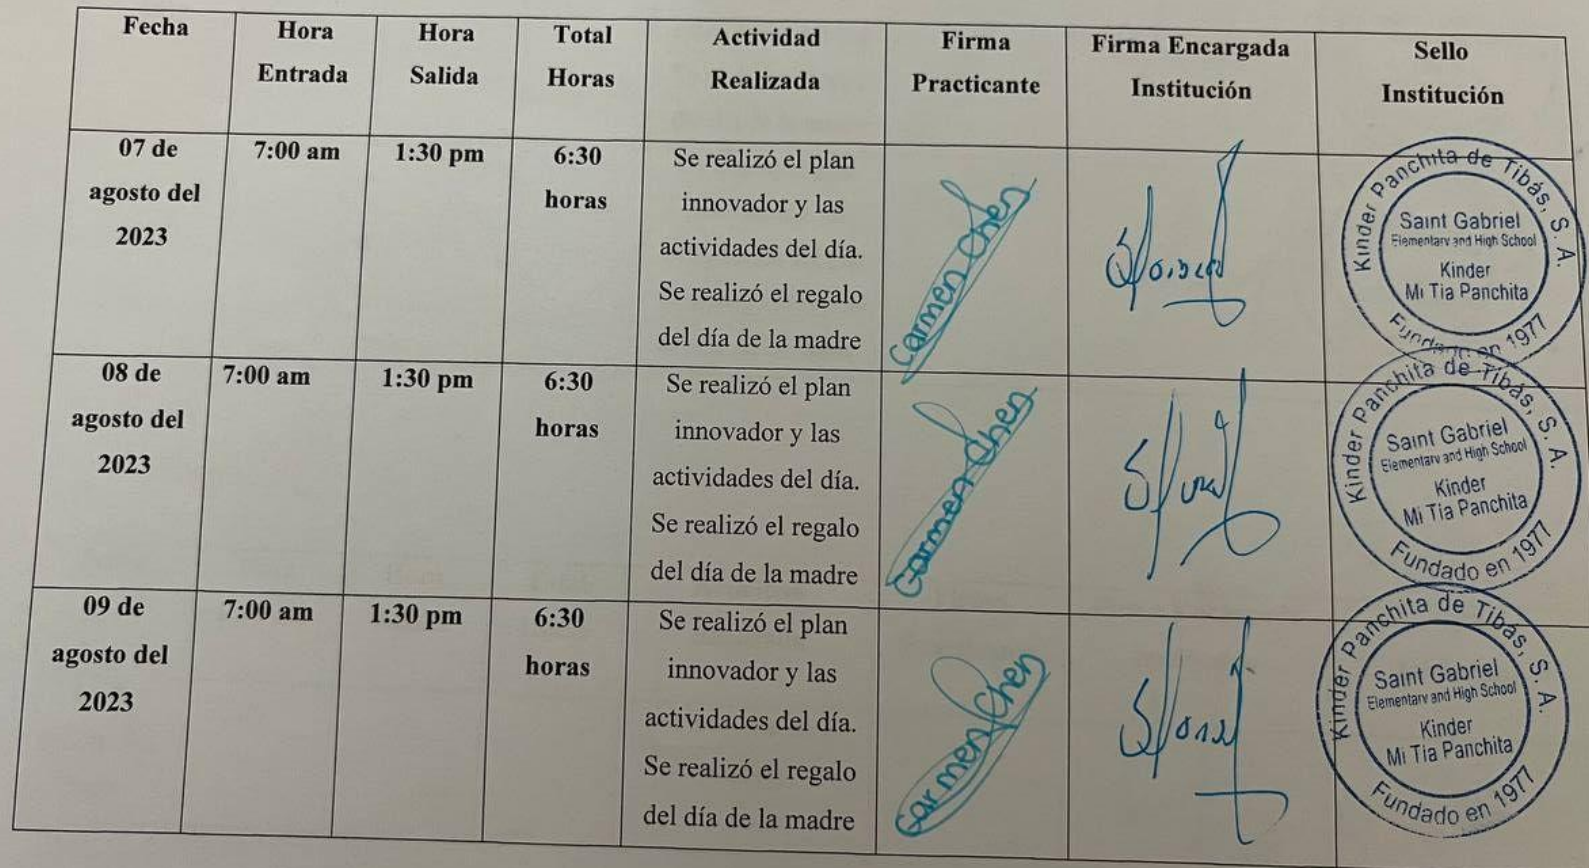 Fecha
Hora
Entrada
Hora
Salida
Total
Horas
Actividad
Realizada
Firma
Practicante
Firma Encargada
Institución
Sello
Institución
07 de
agosto del
2023
7:00 am
1:30 pm
6:30
horas
Se realizó el plan
innovador y las
actividades del día.
Se realizó el regalo
del día de la madre
Carmen Chen
Kinder Panchita de Tibás, S. A.
Saint Gabriel
Elementary and High School
Kinder
Mi Tia Panchita
Fundado en 1977
08 de
agosto del
2023
7:00 am
1:30 pm
6:30
horas
Se realizó el plan
innovador y las
actividades del día.
Se realizó el regalo
del día de la madre
Carmen Chen
Kinder Panchita de Tibás, S. A.
Saint Gabriel
Elementary and High School
Kinder
Mi Tia Panchita
Fundado en 1977
09 de
agosto del
2023
7:00 am
1:30 pm
6:30
horas
Se realizó el plan
innovador y las
actividades del día.
Se realizó el regalo
del día de la madre
Carmen Chen
Kinder Panchita de Tibás, S. A.
Saint Gabriel
Elementary and High School
Kinder
Mi Tia Panchita
Fundado en 1977